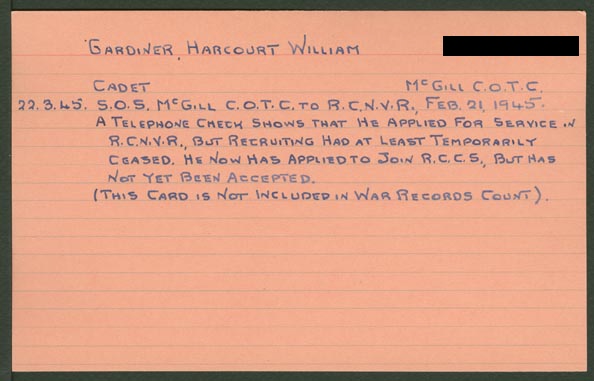 GARDINER, HARCOURT WILLIAM
CADET McGILL C.O.T.C.
22.3.45. S.O.S. McGILL C.O.T.C. TO R.C.N.V.R., FEB. 21, 1945.
A TELEPHONE CHECK SHOWS THAT HE APPLIED FOR SERVICE IN
R.C.N.V.R., BUT RECRUITING HAD AT LEAST TEMPORARILY
CEASED. HE NOW HAS APPLIED TO JOIN R.C.C.S., BUT HAS
NOT YET BEEN ACCEPTED.
(THIS CARD IS NOT INCLUDED IN WAR RECORDS COUNT).